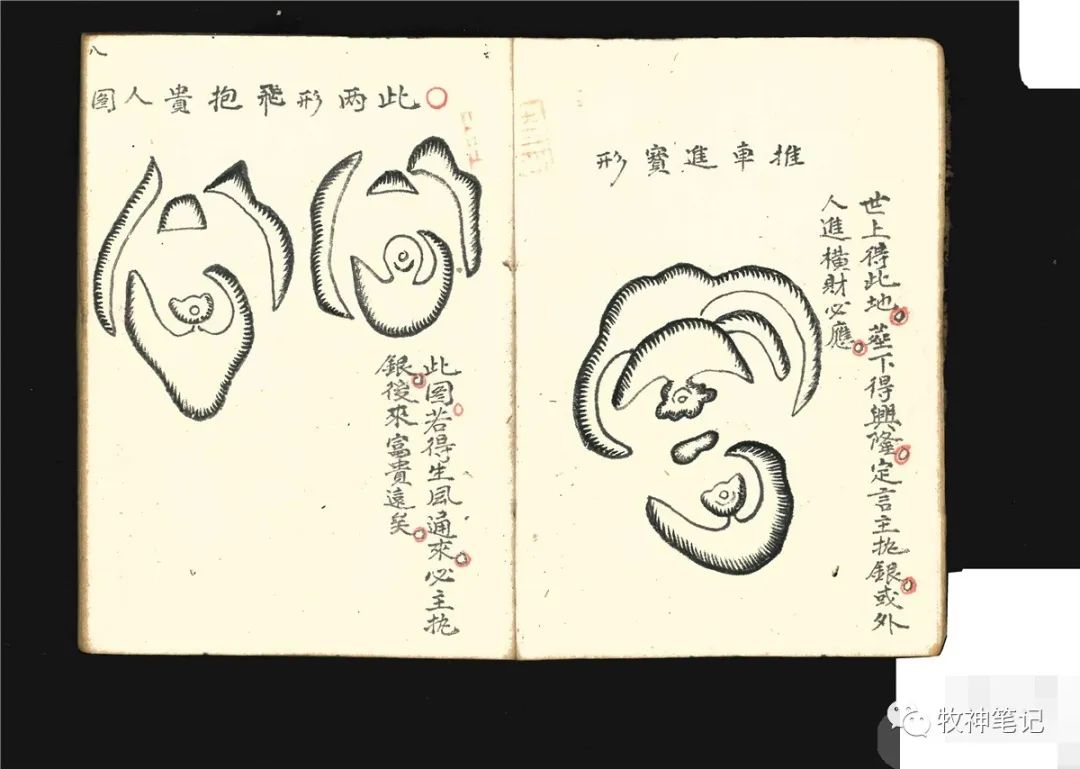 推車進寶形
世上得此地葬下得興隆定言主抱銀或外
人進橫財必應
此两形飛抱貴人图
此图若得生風通來必主抱
銀後來富貴遠矣
八
牧神笔记